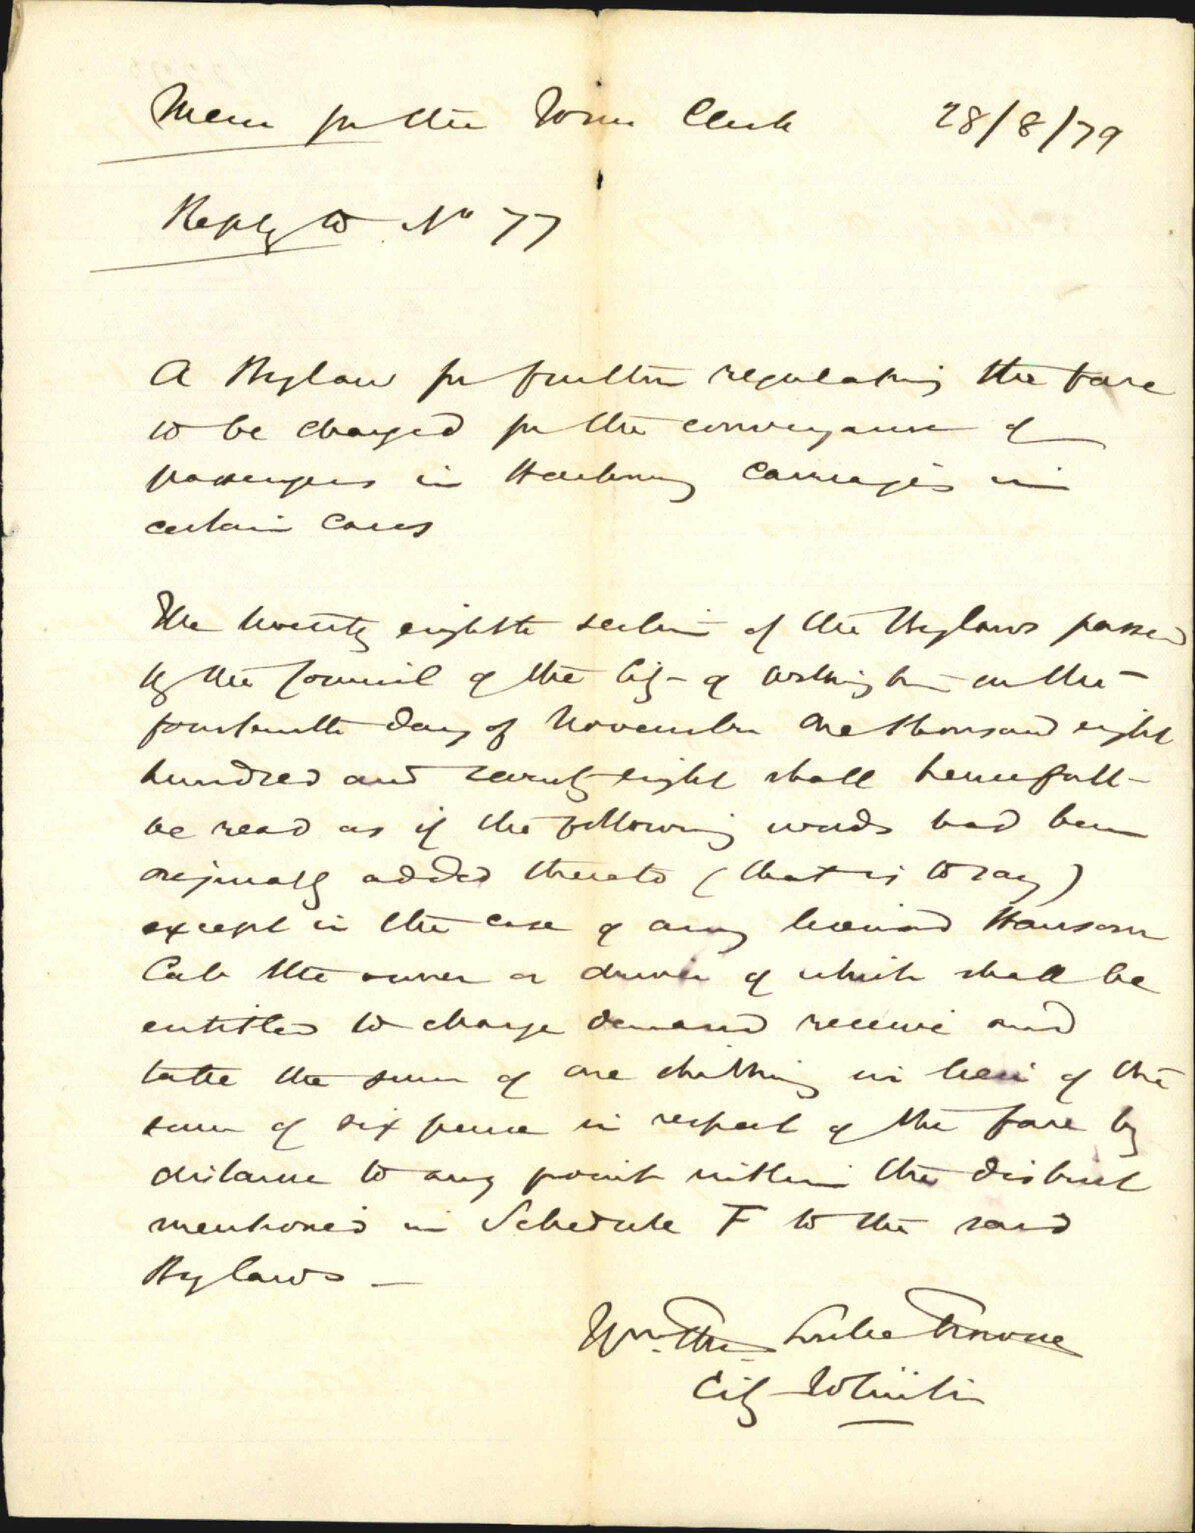 Mem for the Town Clerk 28/8/79
Reply to No 77
A Bylaw for further regulating the fare
to be charged for the conveyance of
passengers in Hackney Carriages in
certain cases
The twenty eighth section of the Bylaws passed
by the Council of the City of Wellington on the
fourteenth day of November One thousand eight
hundred and seventy eight shall henceforth
be read as if the following words had been
originally added thereto (that is to say)
except in the case of any licensed Hansom
Cab the owner or driver of which shall be
entitled to charge demand receive and
take the sum of one shilling in lieu of the
sum of six pence in respect of the fare by
distance to any point within the district
mentioned in Schedule F to the said
Bylaws —
Wm. Thos. Locke Travers
City Solicitor